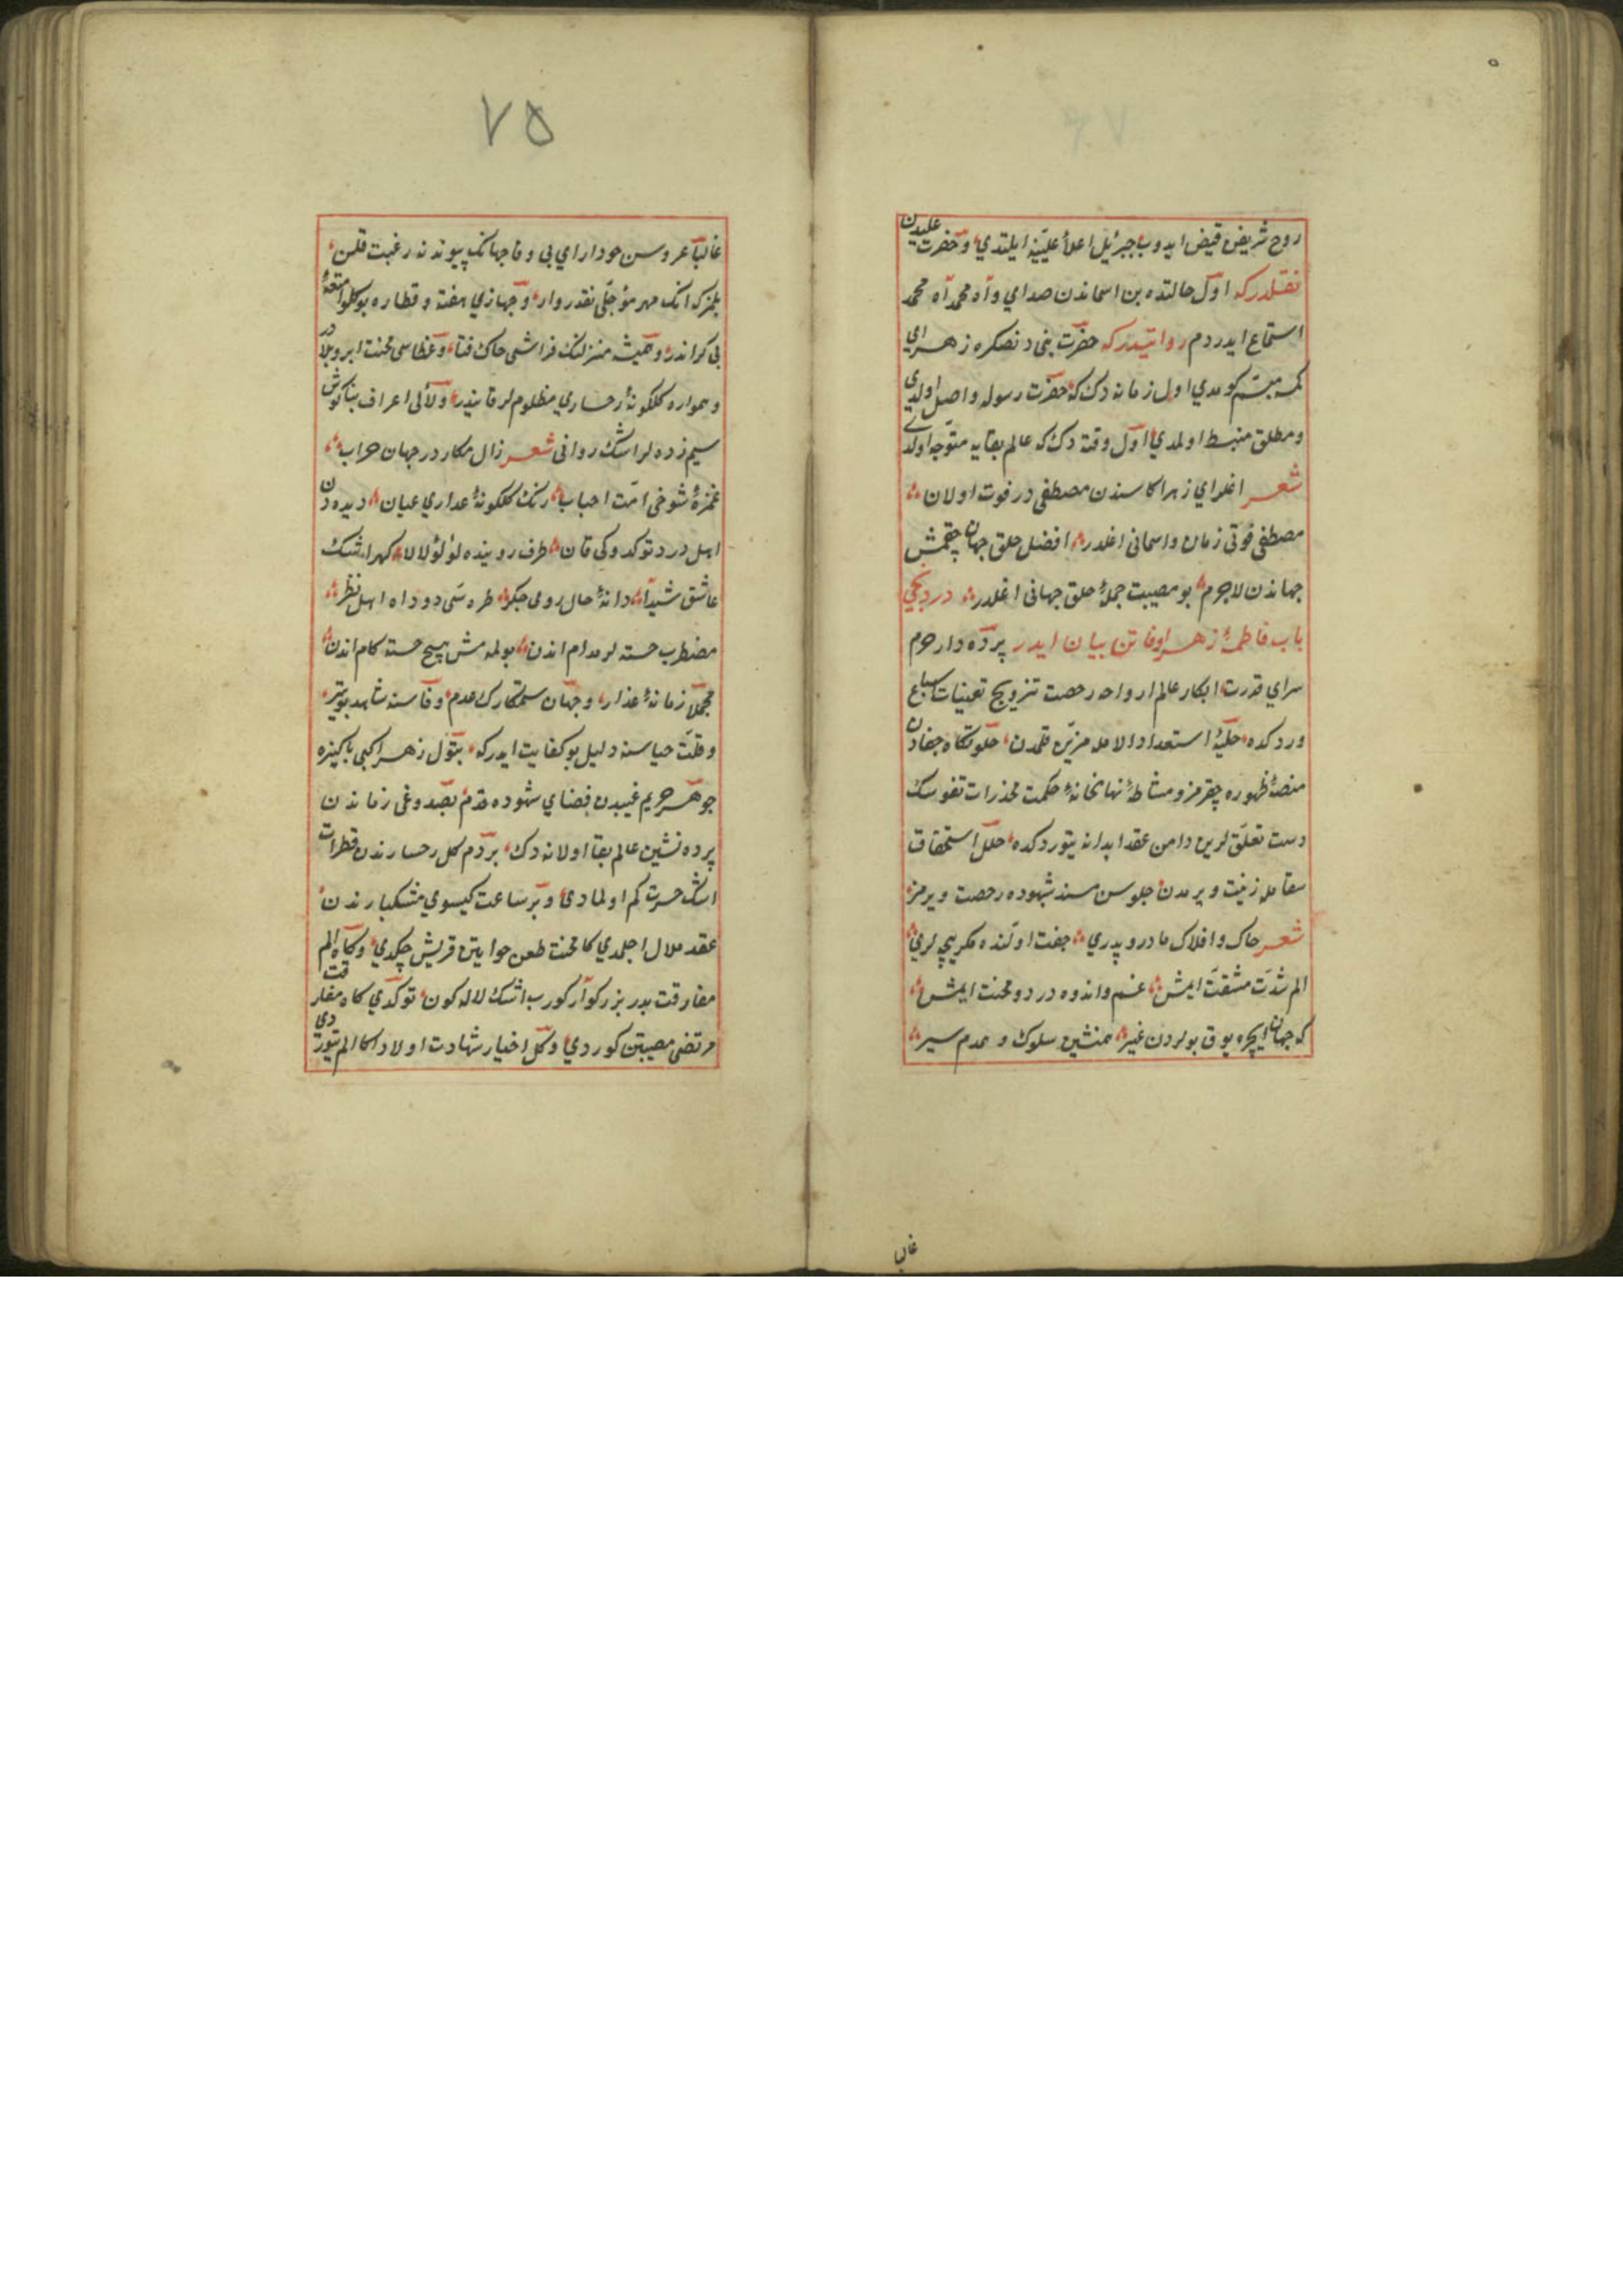 روح شریفن قبض ایدوب جبرئیل اعلا علیینه ایلتدی و حضرت علیدن
نقلدر که اول حالتده بن اسماندن صدای وآه محمد آه محمد
استماع ایدردم روایتدر که حضرت بنی دنصکره زهرای
کمسه متبسم کورمدی اول زمانه دک که حضرت رسوله واصل اولدی
و مطلق منبسط اولمدی اول وقته دک که عالم بقایه متوجه اولدی
شعر اغلرای زهرا کا سندن مصطفی در فوت اولان
مصطفی فوتی زمان واسمانی اغلدر افضل خلق جهان چقمش
جهاندن لاجرم بو مصیبت جملهٔ خلق جهانی اغلدر دردنجی
باب فاطمهٔ زهرا وفاتن بیان ایدر پرده دار حرم
سرای قدرت ابکار عالم ارواحه رخصت تزویج تعینات سباع
ورد کده حلیهٔ استعداد الامله مزین قلمدن خلوتکاه خفادن
منصهٔ ظهوره چقرمز و مشاطهٔ نهانخانهٔ حکمت مخذرات نفوسک
دست تعلق لرین دامن عقد ابدانه یتوردکده حلل استحقاق
بقا مله زینت ویرمدن جلوسن مسند شهوده رخصت ویرمز
شعر خاک و افلاک مادر و پدری جفت اولنده مکر بچه لری
الم شدت مشقت ایمش غم و اندوه درد و محنت ایمش
که جهان ایچره یوق بولردن غیر همنشین سلوک و همدم سیر
غالبا
۷۵
غالبا عروسن حودارای بی وفا جهانک پیوندنه رغبت قلن
بلمز که انک مهر مؤجلی نقد روار و جهازی هفته و قطاره یوکلو امتعهٔ
بی کراندر و همیشه منزلنک فراشی خاک فنا و غطاسی محنت ابر وبلادر
و همواره کلکونهٔ رخساری مظلوم لر قانیدر و لآلی اعراف بناکوش
سیم زده لر اشک روانی شعر زال مکار در جهان خراب
غمزهٔ شوخی امت احباب رنک کلکونهٔ عذاری عیان دیده دن
اهل درد توکدوکی قان طرف روینده لؤلؤ لالا کهر اشک
عاشق شیدا دانهٔ خال رومی جکر طره سی دود اه اهل نظر
مضطرب خسته لر مدام اندن بولمه مش هیچ خسته کام اندن
مجملا زمانهٔ غدار و جهان ستمکارک عدم وفاسنه شاهد بویتر
وقلت حیاسنه دلیل بو کفایت ایدر که بتول زهرا کبی پاکیزه
جوهر حریم غیبدن فضای شهوده قدم بصدوغی زماندن
پرده نشین عالم بقا اولانه دک بردم کل رخسارندن قطرات
اشک حسرت کم اولمادی و بر ساعت کیسوی مشکبارندن
عقد ملال اچلمدی کا محنت طعن خواتین قریش چکدی و کاه الم
مفارقت پدر بزرکوار کورب اشک لاله کون توکدی کاه مفارقت
مرتضی مصیبتن کوردی و کل اخبار شهادت اولاد اکا الم یتوردی